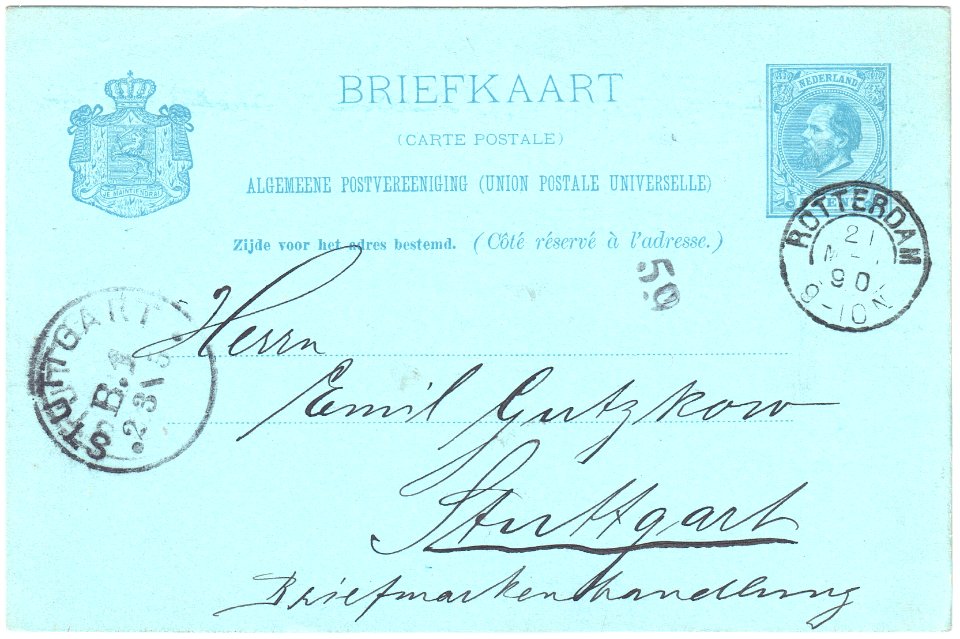 BRIEFKAART
(CARTE POSTALE)
ALGEMEENE POSTVEREENIGING (UNION POSTALE UNIVERSELLE)
Zijde voor het adres bestemd. (Côté réservé à l'adresse.)
NEDERLAND
JE MAINTIENDRAI
ROTTERDAM
21
90
9-10N
59
STUTTGART
B.
Herrn
Emil Gutzkow
Stuttgart
Briefmarkenhandlung